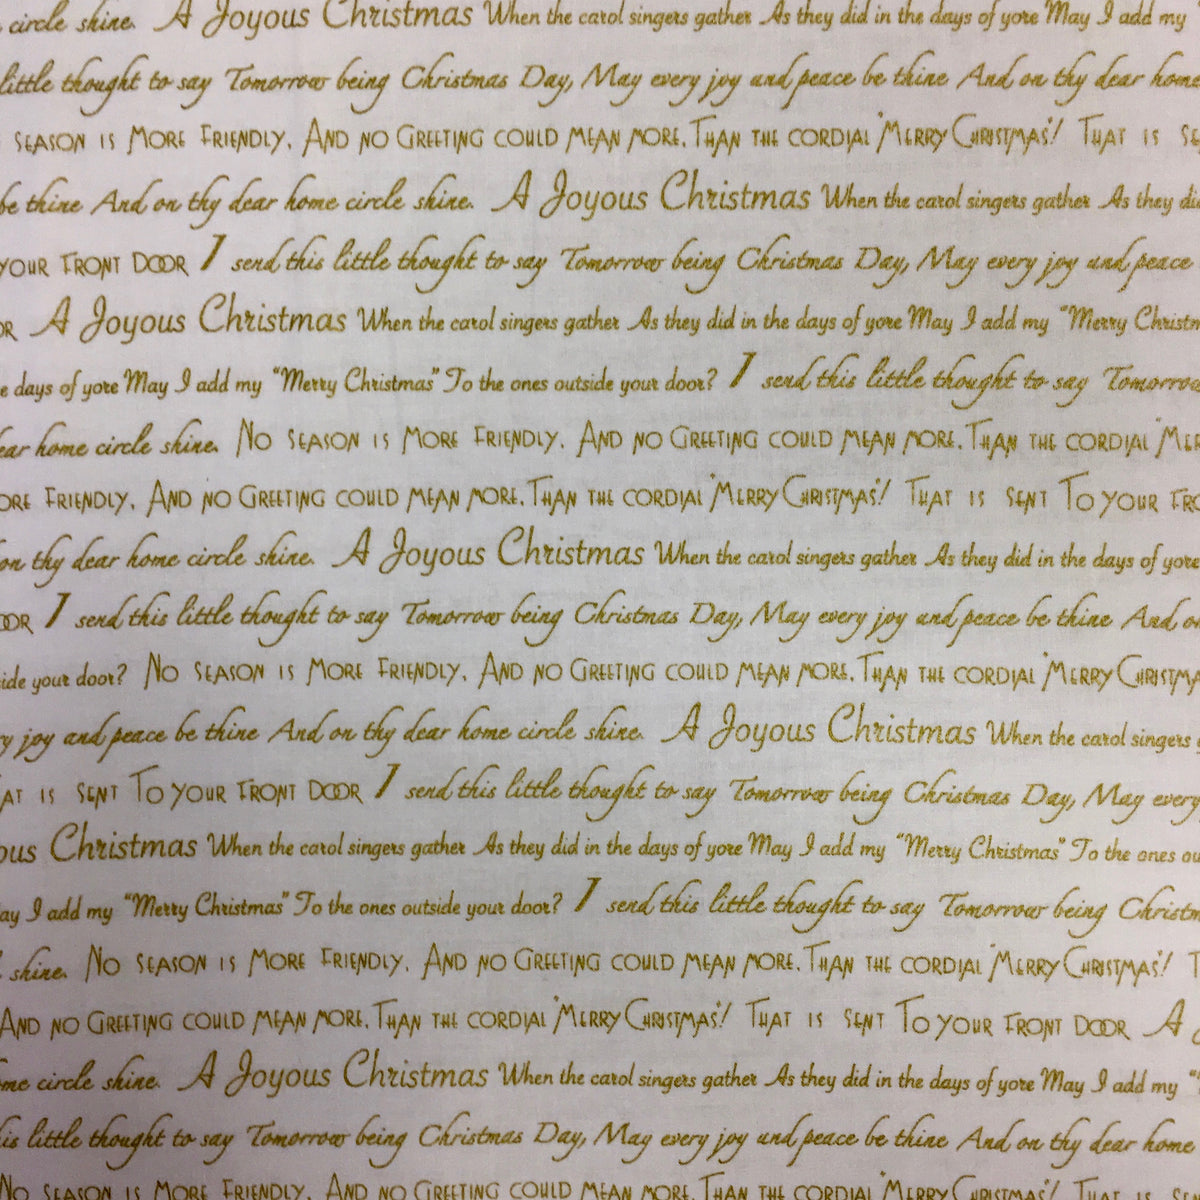 circle shine. A Joyous Christmas When the carol singers gather As they did in the days of yore May I add my
little thought to say Tomorrow being Christmas Day, May every joy and peace be thine And on thy dear home
SEASON IS MORE FRIENDLY, AND NO GREETING COULD MEAN MORE, THAN THE CORDIAL "MERRY CHRISTMAS"! THAT IS SE
be thine And on thy dear home circle shine. A Joyous Christmas When the carol singers gather As they did
YOUR FRONT DOOR I send this little thought to say Tomorrow being Christmas Day, May every joy and peace
OR A Joyous Christmas When the carol singers gather As they did in the days of yore May I add my "Merry Christm
e days of yore May I add my "Merry Christmas" To the ones outside your door? I send this little thought to say Tomorrow
ear home circle shine. NO SEASON IS MORE FRIENDLY, AND NO GREETING COULD MEAN MORE, THAN THE CORDIAL "MER
ORE FRIENDLY, AND NO GREETING COULD MEAN MORE, THAN THE CORDIAL "MERRY CHRISTMAS"! THAT IS SENT TO YOUR FRO
on thy dear home circle shine. A Joyous Christmas When the carol singers gather As they did in the days of yore
OOR I send this little thought to say Tomorrow being Christmas Day, May every joy and peace be thine And on
ide your door? NO SEASON IS MORE FRIENDLY, AND NO GREETING COULD MEAN MORE, THAN THE CORDIAL "MERRY CHRISTMA
ry joy and peace be thine And on thy dear home circle shine. A Joyous Christmas When the carol singers g
AT IS SENT TO YOUR FRONT DOOR I send this little thought to say Tomorrow being Christmas Day, May every
ous Christmas When the carol singers gather As they did in the days of yore May I add my "Merry Christmas" To the ones ou
ay I add my "Merry Christmas" To the ones outside your door? I send this little thought to say Tomorrow being Christm
shine. NO SEASON IS MORE FRIENDLY, AND NO GREETING COULD MEAN MORE, THAN THE CORDIAL "MERRY CHRISTMAS"! T
AND NO GREETING COULD MEAN MORE, THAN THE CORDIAL "MERRY CHRISTMAS"! THAT IS SENT TO YOUR FRONT DOOR A J
me circle shine. A Joyous Christmas When the carol singers gather As they did in the days of yore May I add my "
is little thought to say Tomorrow being Christmas Day, May every joy and peace be thine And on thy dear home
NO SEASON IS MORE FRIENDLY, AND NO GREETING COULD MEAN MORE, THAN THE CORDIAL "MERRY CHRISTMAS"! THAT IS S